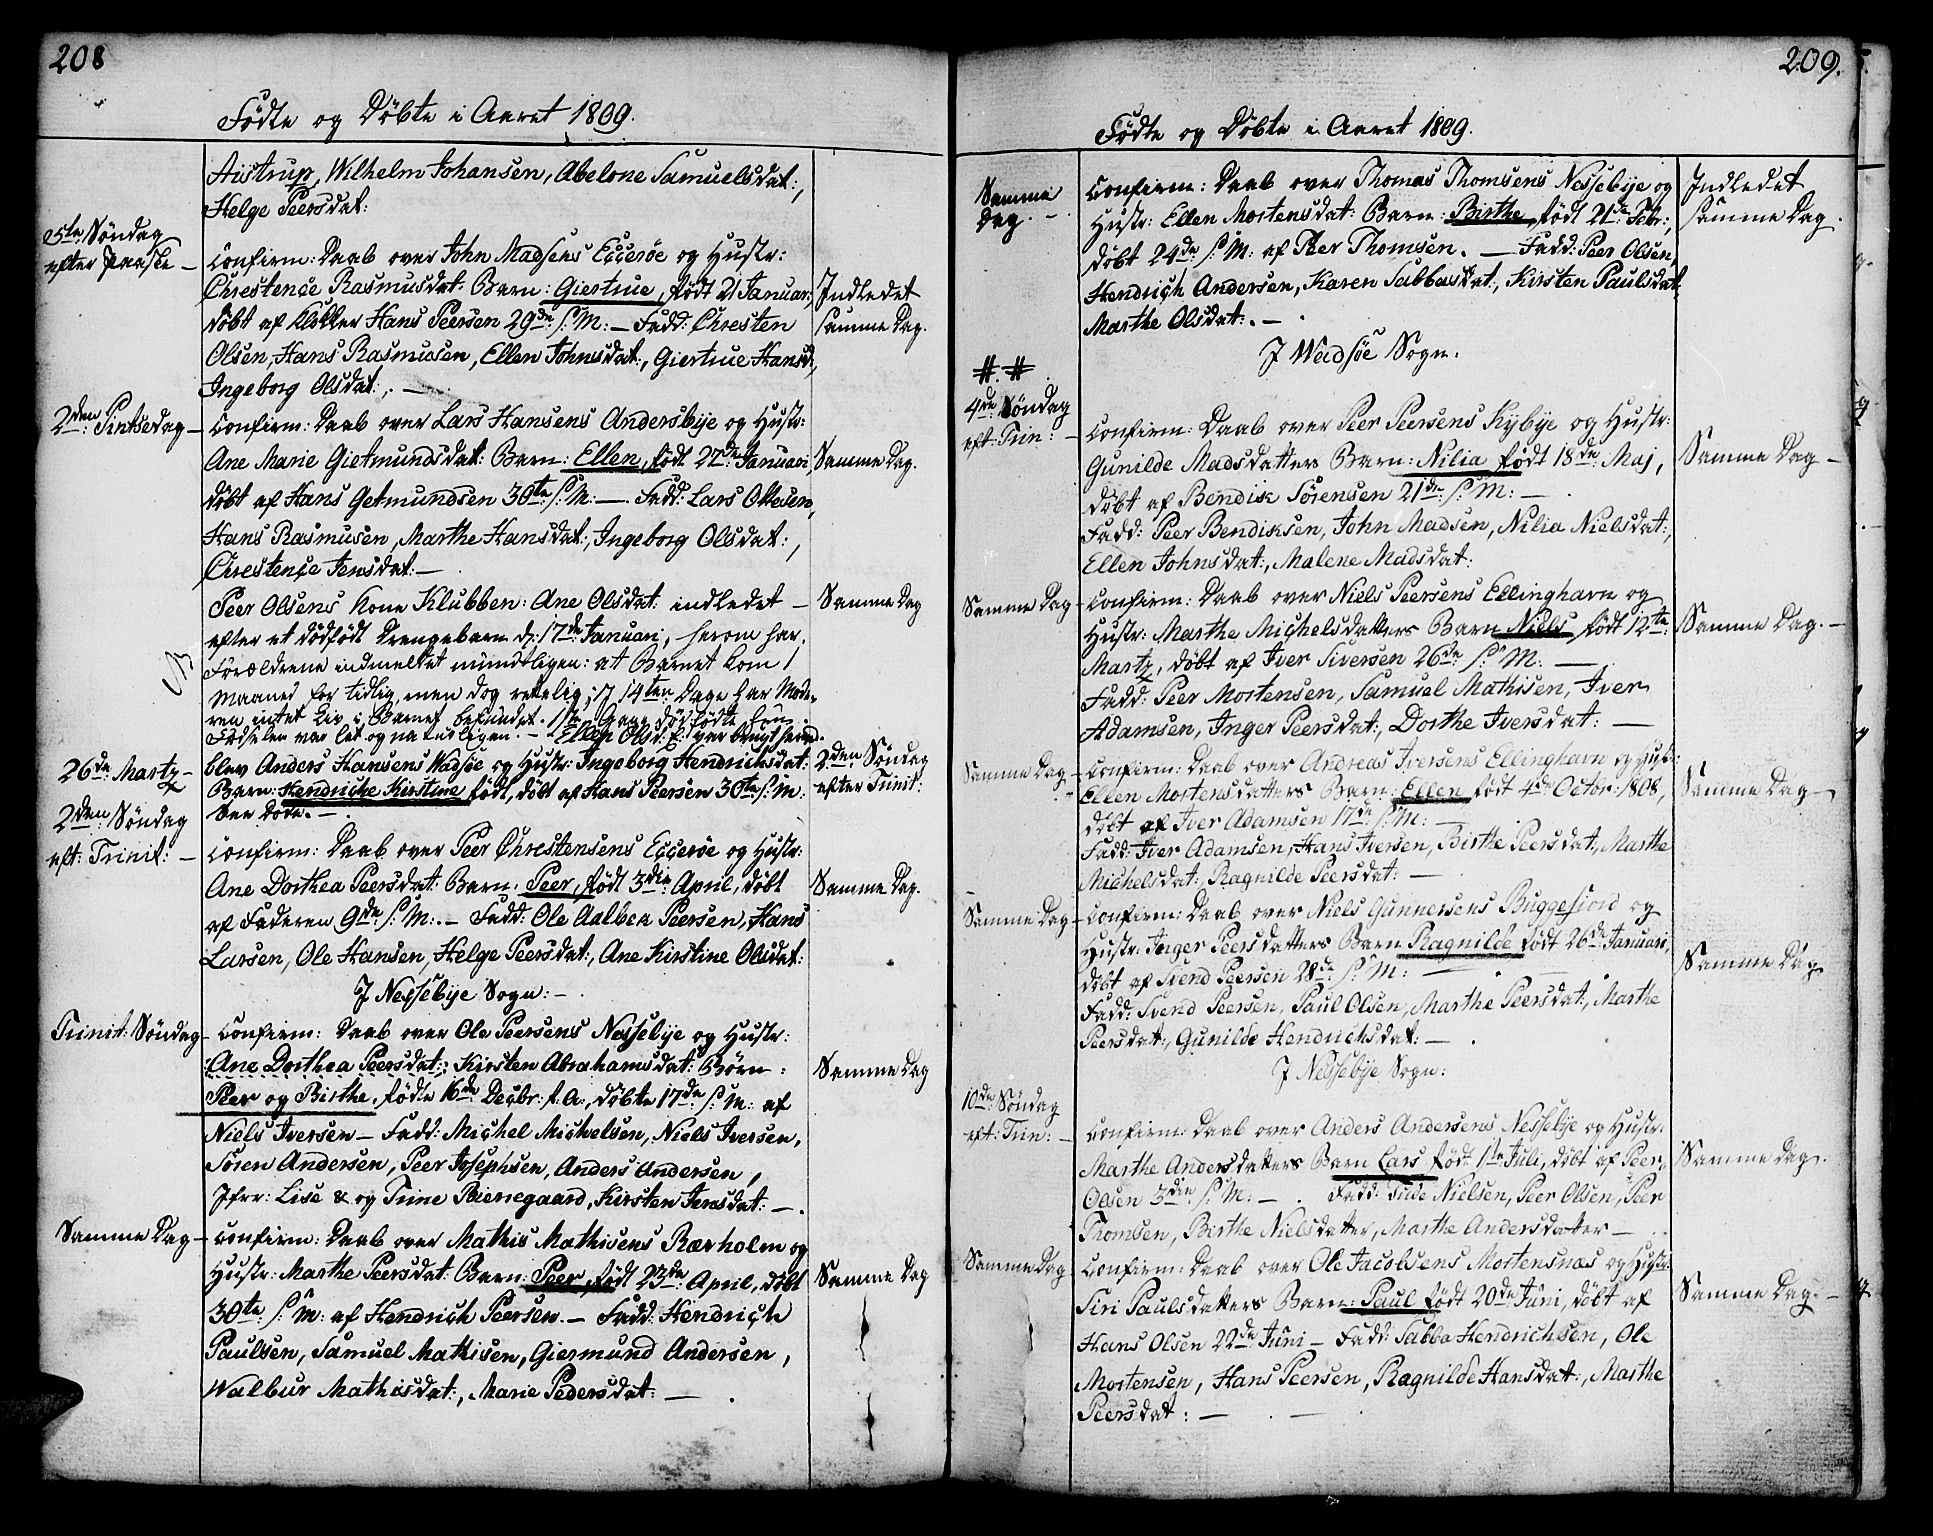 208
Fødte og Døbte i Aaret 1809.
Austrup, Wilhelm Johansen, Abelone Samuelsdat:,
Helge Peersdat:
5te Søndag
efter Paaske –
Confirm: Daab over John Madsens Eccerøe og Hustr:
Chrestence Rasmusdat: Barn: Giertrue, født 21 Januar:,
døbt af Klokker Hans Peersen 29de S: M: – Fadd: Chresten
Olsen, Hans Rasmussen, Ellen Johnsdat:, Giertrue Hansd:,
Ingeborg Olsdat:, –
Indledet
samme Dag.
2den Pintsedag –
Confirm: Daab over Lars Hansens Andersbye og Hustr:
Ane Marie Gietmundsdat: Barn: Ellen, født 27de Januari,
døbt af Hans Getmundsen 30te S: M: – Fadd: Lars Ottesen,
Hans Rasmusen, Marthe Hansdat:, Ingeborg Olsdat:,
Chrestence Jensdat: –
Samme Dag.
Peer Olsens Kone Klubben: Ane Olsdat: indledet –
efter et dødfødt Drengebarn d: 17de Januari, herom har
Forældrene indmeldet mundtligen: at Barnet kom 1
Maaned for tidlig, men dog rettelig; I 14ten Dage har Mode-
ren intet Liv i Barnet befundet.
Fødselen var let og naturligen. – Ellen Olsd:
Samme Dag
26de Martz –
blev Anders Hansens Wadsøe og Hustr: Ingeborg Hendrichsdat:
Barn: Hendriche Kirstine født, døbt af Hans Peersen 30te S: M:
2den Søndag
efter Trinit:
2den Søndag
eft: Trinit: –
Confirm: Daab over Peer Chrestensens Eccerøe og Hustr:
Ane Dorthea Peersdat: Barn: Peer, født 3die April, døbt
af Faderen 9de S: M:. – Fadd: Ole Aalben Peersen, Hans
Larsen, Ole Hansen, Helge Peersdat:, Ane Kirstine Olsdat:
Samme Dag.
I Nessebye Sogn: –
Trinit: Søndag –
Confirm: Daab over Ole Peersens Nessebye og Hustr:
Ane Dorthea Peersdat:; Kirsten Abrahamsdat: Børn:
Peer og Birthe, fødte 16de Decbr: f. A:, døbte 17de S: M: af
Niels Iversen – Fadd: Michel Michelsen, Niels Iversen,
Søren Andersen, Peer Josephsen, Anders Andersen,
Jfrr: Lise & og Trine Bienegaard, Kirsten Jensdat: –.
Samme Dag
Samme Dag –
Confirm: Daab over Mathis Mathisens Rærholm og
Hustr: Marthe Peersdat: Barn: Peer, født 23de April, døbt
30te S: M: af Hendrich Peersen. – Fadd: Hendrich
Paulsen, Samuel Mathisen, Giermund Andersen,
Walbur Mathisdat:, Marie Pedersdat: –
Samme Dag
209.
Fødte og Døbte i Aaret 1809.
Samme
Dag. –
Confirm: Daab over Thomas Thomsens Nessebye og
Hustr: Ellen Mortensdat: Barn: Birthe, født 21de Febr:,
døbt 24de S: M: af Peer Thomsen. – Fadd: Peer Olsen,
Hendrich Andersen, Karen Sabbasdat:, Kirsten Paulsdat:
Marthe Olsdat:. –
Indledet
samme Dag.
I Wadsøe Sogn.
#. #.
4de Søndag
eft: Trin: –
Confirm: Daab over Peer Peersens Kybye og Hustr:
Gunilde Madsdatters Barn: Nilia født 18de Maj,
døbt af Bendik Sørensen 21de S: M: –
Fadd: Peer Bendiksen, John Madsen, Nilia Nielsdat:,
Ellen Johnsdat:, Malene Madsdat:
Samme Dag –
Samme Dag –
Confirm: Daab over Niels Peersens Ellinghavn og
Hustr: Marthe Michelsdatters Barn Niels født 12te
Martz, døbt af Iver Siversen 26de S: M: –
Fadd: Peer Mortensen, Samuel Mathisen, Iver
Adamsen, Inger Peersdat:, Dorthe Iversdat: –
Samme Dag. –
Samme Dag –
Confirm: Daab over Andreas Iversens Ellinghavn og Hust:
Ellen Mortensdatters Barn: Ellen født 4de Octbr: 1808,
døbt af Iver Adamsen 17de S: M: –
Fadd: Iver Adamsen, Hans Iversen, Birthe Peersdat:, Marthe
Michelsdat:, Ragnilde Peersdat: –
Samme Dag –
Samme Dag –
Confirm: Daab over Niels Gunnersens Buggefiord og
Hustr: Inger Peersdatters Barn Ragnilde født 26de Januari,
døbt af Svend Peersen 28de S: M: –
Fadd: Svend Peersen, Paul Olsen, Marthe Peersdat:, Marthe
Peersdat:, Gunilde Hendrichsdat: –
Samme Dag
I Nessebye Sogn:
10de Søndag
eft: Trin: –
Confirm: Daab over Anders Andersens Nessebye og Hustr:
Marthe Andersdatters Barn Lars født 1ste Juli, døbt af Peer
Olsen 3die S: M: –. Fadd: Nielsen, Peer Olsen, Peer
Thomsen, Birthe Nielsdatter, Marthe Andersdatter –
Samme Dag.
Samme Dag
Confirm: Daab over Ole Jacobsens Mortensnæs og Hustr:
Siri Paulsdatters Barn: Paul født 20de Juni, døbt af
Hans Olsen 22de Juni – Fadd: Sabba Hendrichsen, Ole
Mortensen, Hans Peersen, Ragnilde Hansdat:, Marthe
Peersdat: –
Samme Dag. –